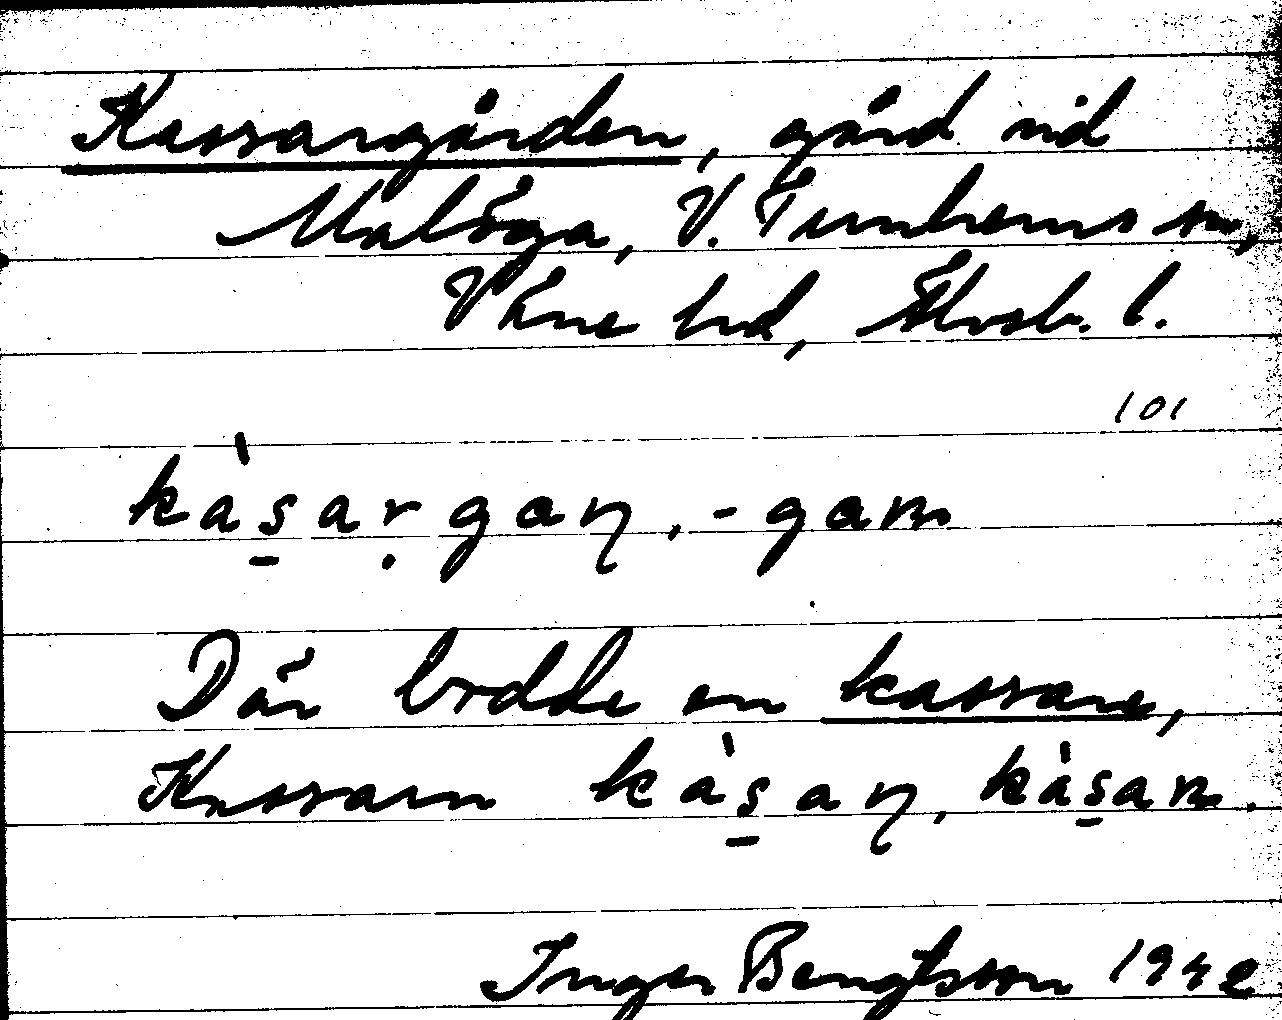 Kassargården, gård vid
Malöga, V. Tunhems sn,
Väne hd, Älvsb. l.
101
kàs̱aṛgaɳ, -gaɴ
Där bodde en kassare,
Kassarn kàs̱aɳ, kàs̱aɴ.
Inger Bengtsson 1942